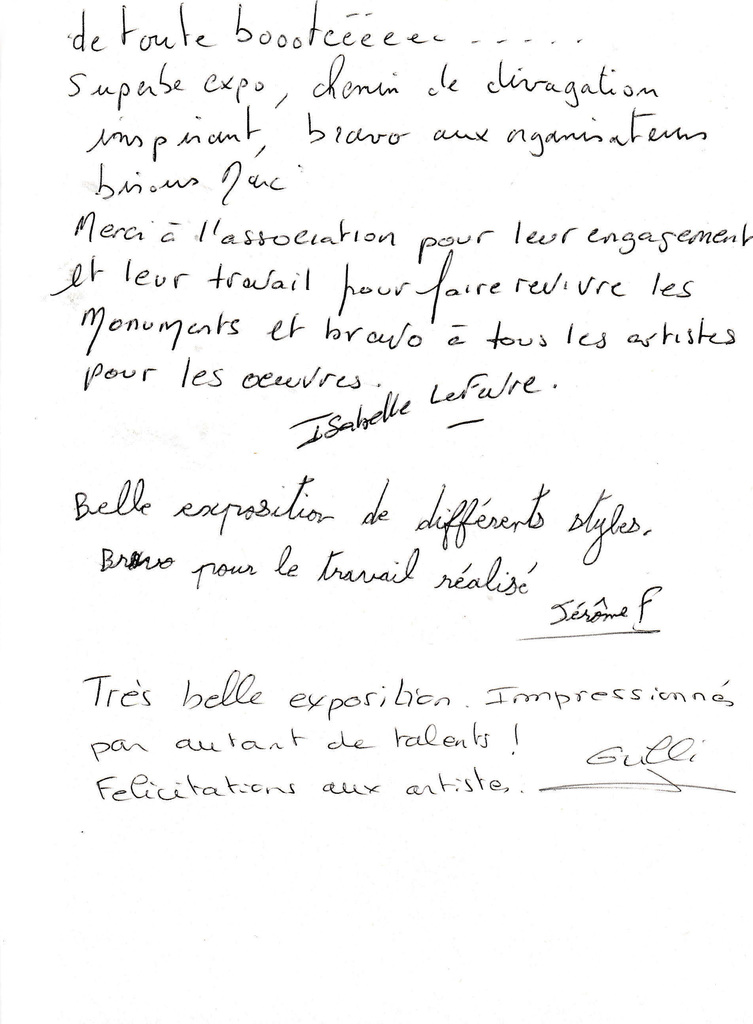 de toute boootéééée - - - - -
Superbe expo, chemin de divagation
inspirant, bravo aux organisateurs
bisous Marc
Merci à l'association pour leur engagement
et leur travail pour faire revivre les
Monuments et bravo à tous les artistes
pour les oeuvres.
Isabelle Lefaire.
Belle exposition de différents styles.
Bravo pour le travail réalisé
Jérôme F
Très belle exposition. Impressionnés
par autant de talents !
Gulli
Felicitations aux artistes.